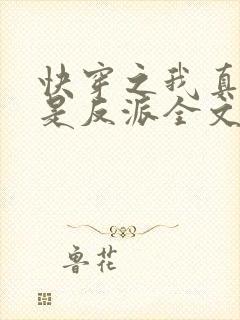 快穿之我真
是反派全文
鲁花